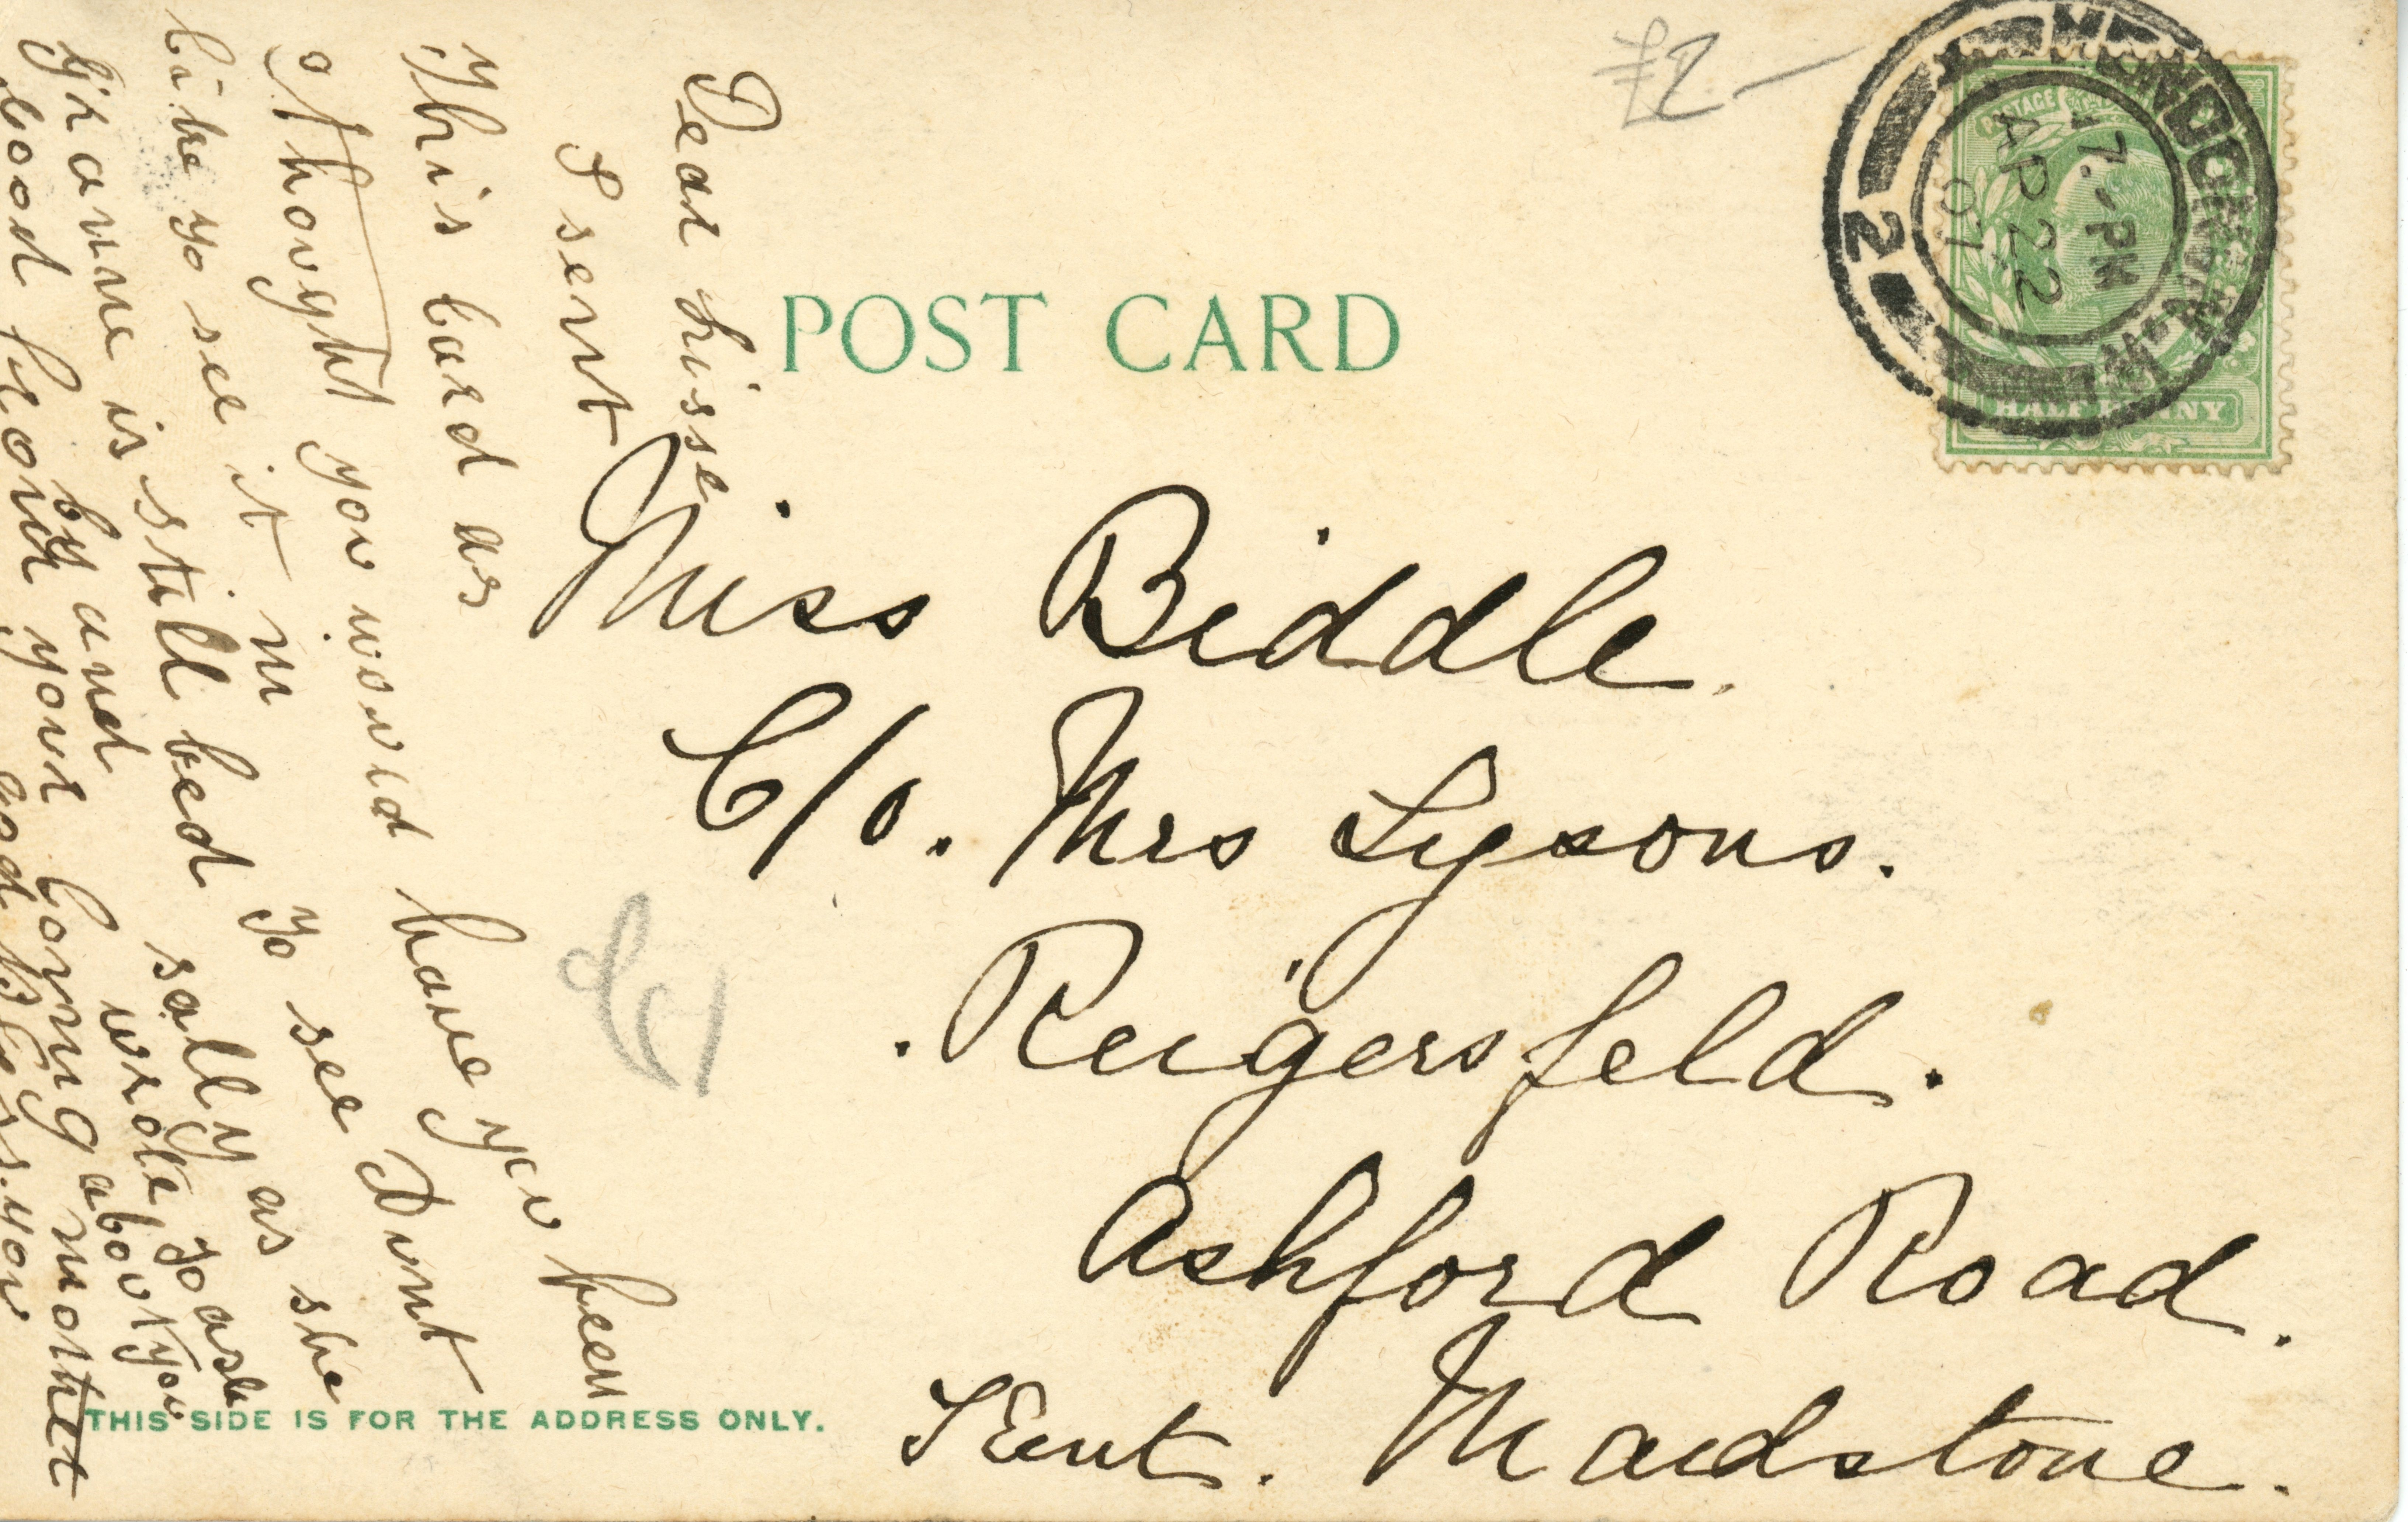 POST CARD
£2-
LONDON. W.
7.- PM
AP 22
07
2
POSTAGE
HALF PENNY
Miss Biddle.
C/o. Mrs Lysons.
Reigersfeld.
Ashford Road.
Kent. Maidstone.
THIS SIDE IS FOR THE ADDRESS ONLY.
Dear Lisse
I sent
This Card as
I thought you would have you been
like to see it m to see Dunt
Granne is still bed sally as she
by and wrote to ask
about you
good your Coming mother
god Bless you